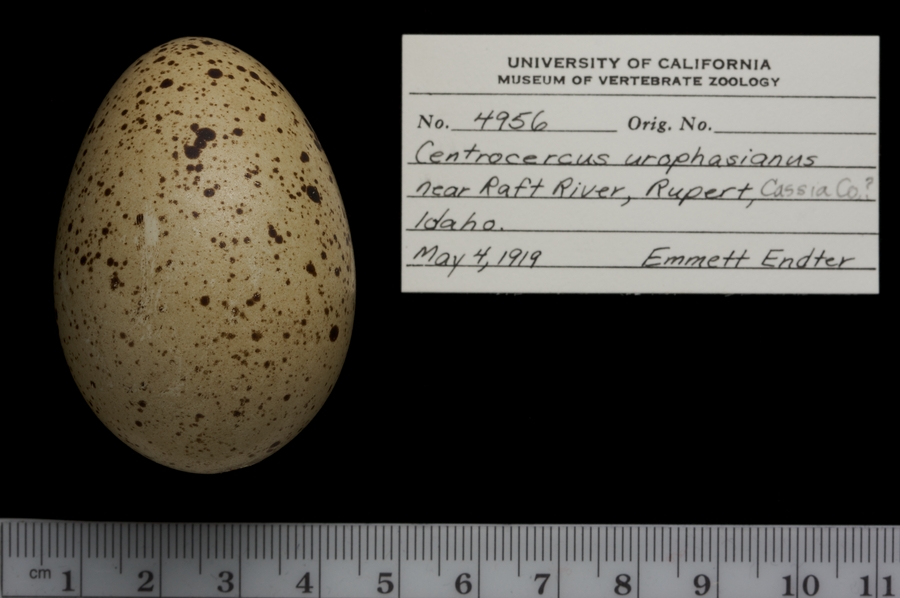 UNIVERSITY OF CALIFORNIA
MUSEUM OF VERTEBRATE ZOOLOGY
No. 4956 Orig. No.
Centrocercus urophasianus
near Raft River, Rupert, Cassia Co.?
Idaho.
May 4, 1919 Emmett Endter
cm 1 2 3 4 5 6 7 8 9 10 11